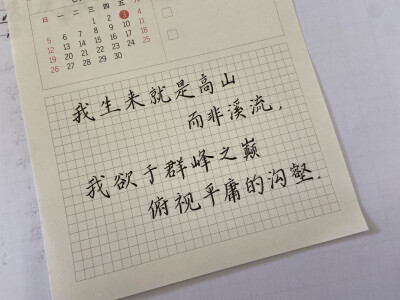 日 一 二 三 四 五 六
1 2 3 4
5 6 7 8 9 10 11
12 13 14 15 16 17 18
19 20 21 22 23 24 25
26 27 28 29 30
我生来就是高山
而非溪流，
我欲于群峰之巅
俯视平庸的沟壑.